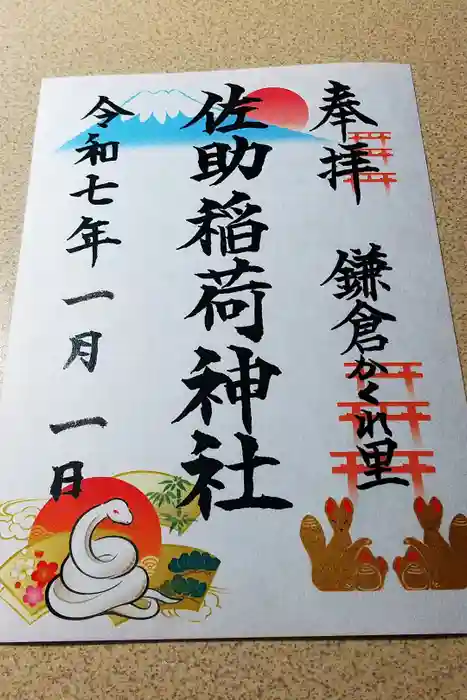 奉拝
鎌倉かくれ里
佐助稲荷神社
令和七年一月一日